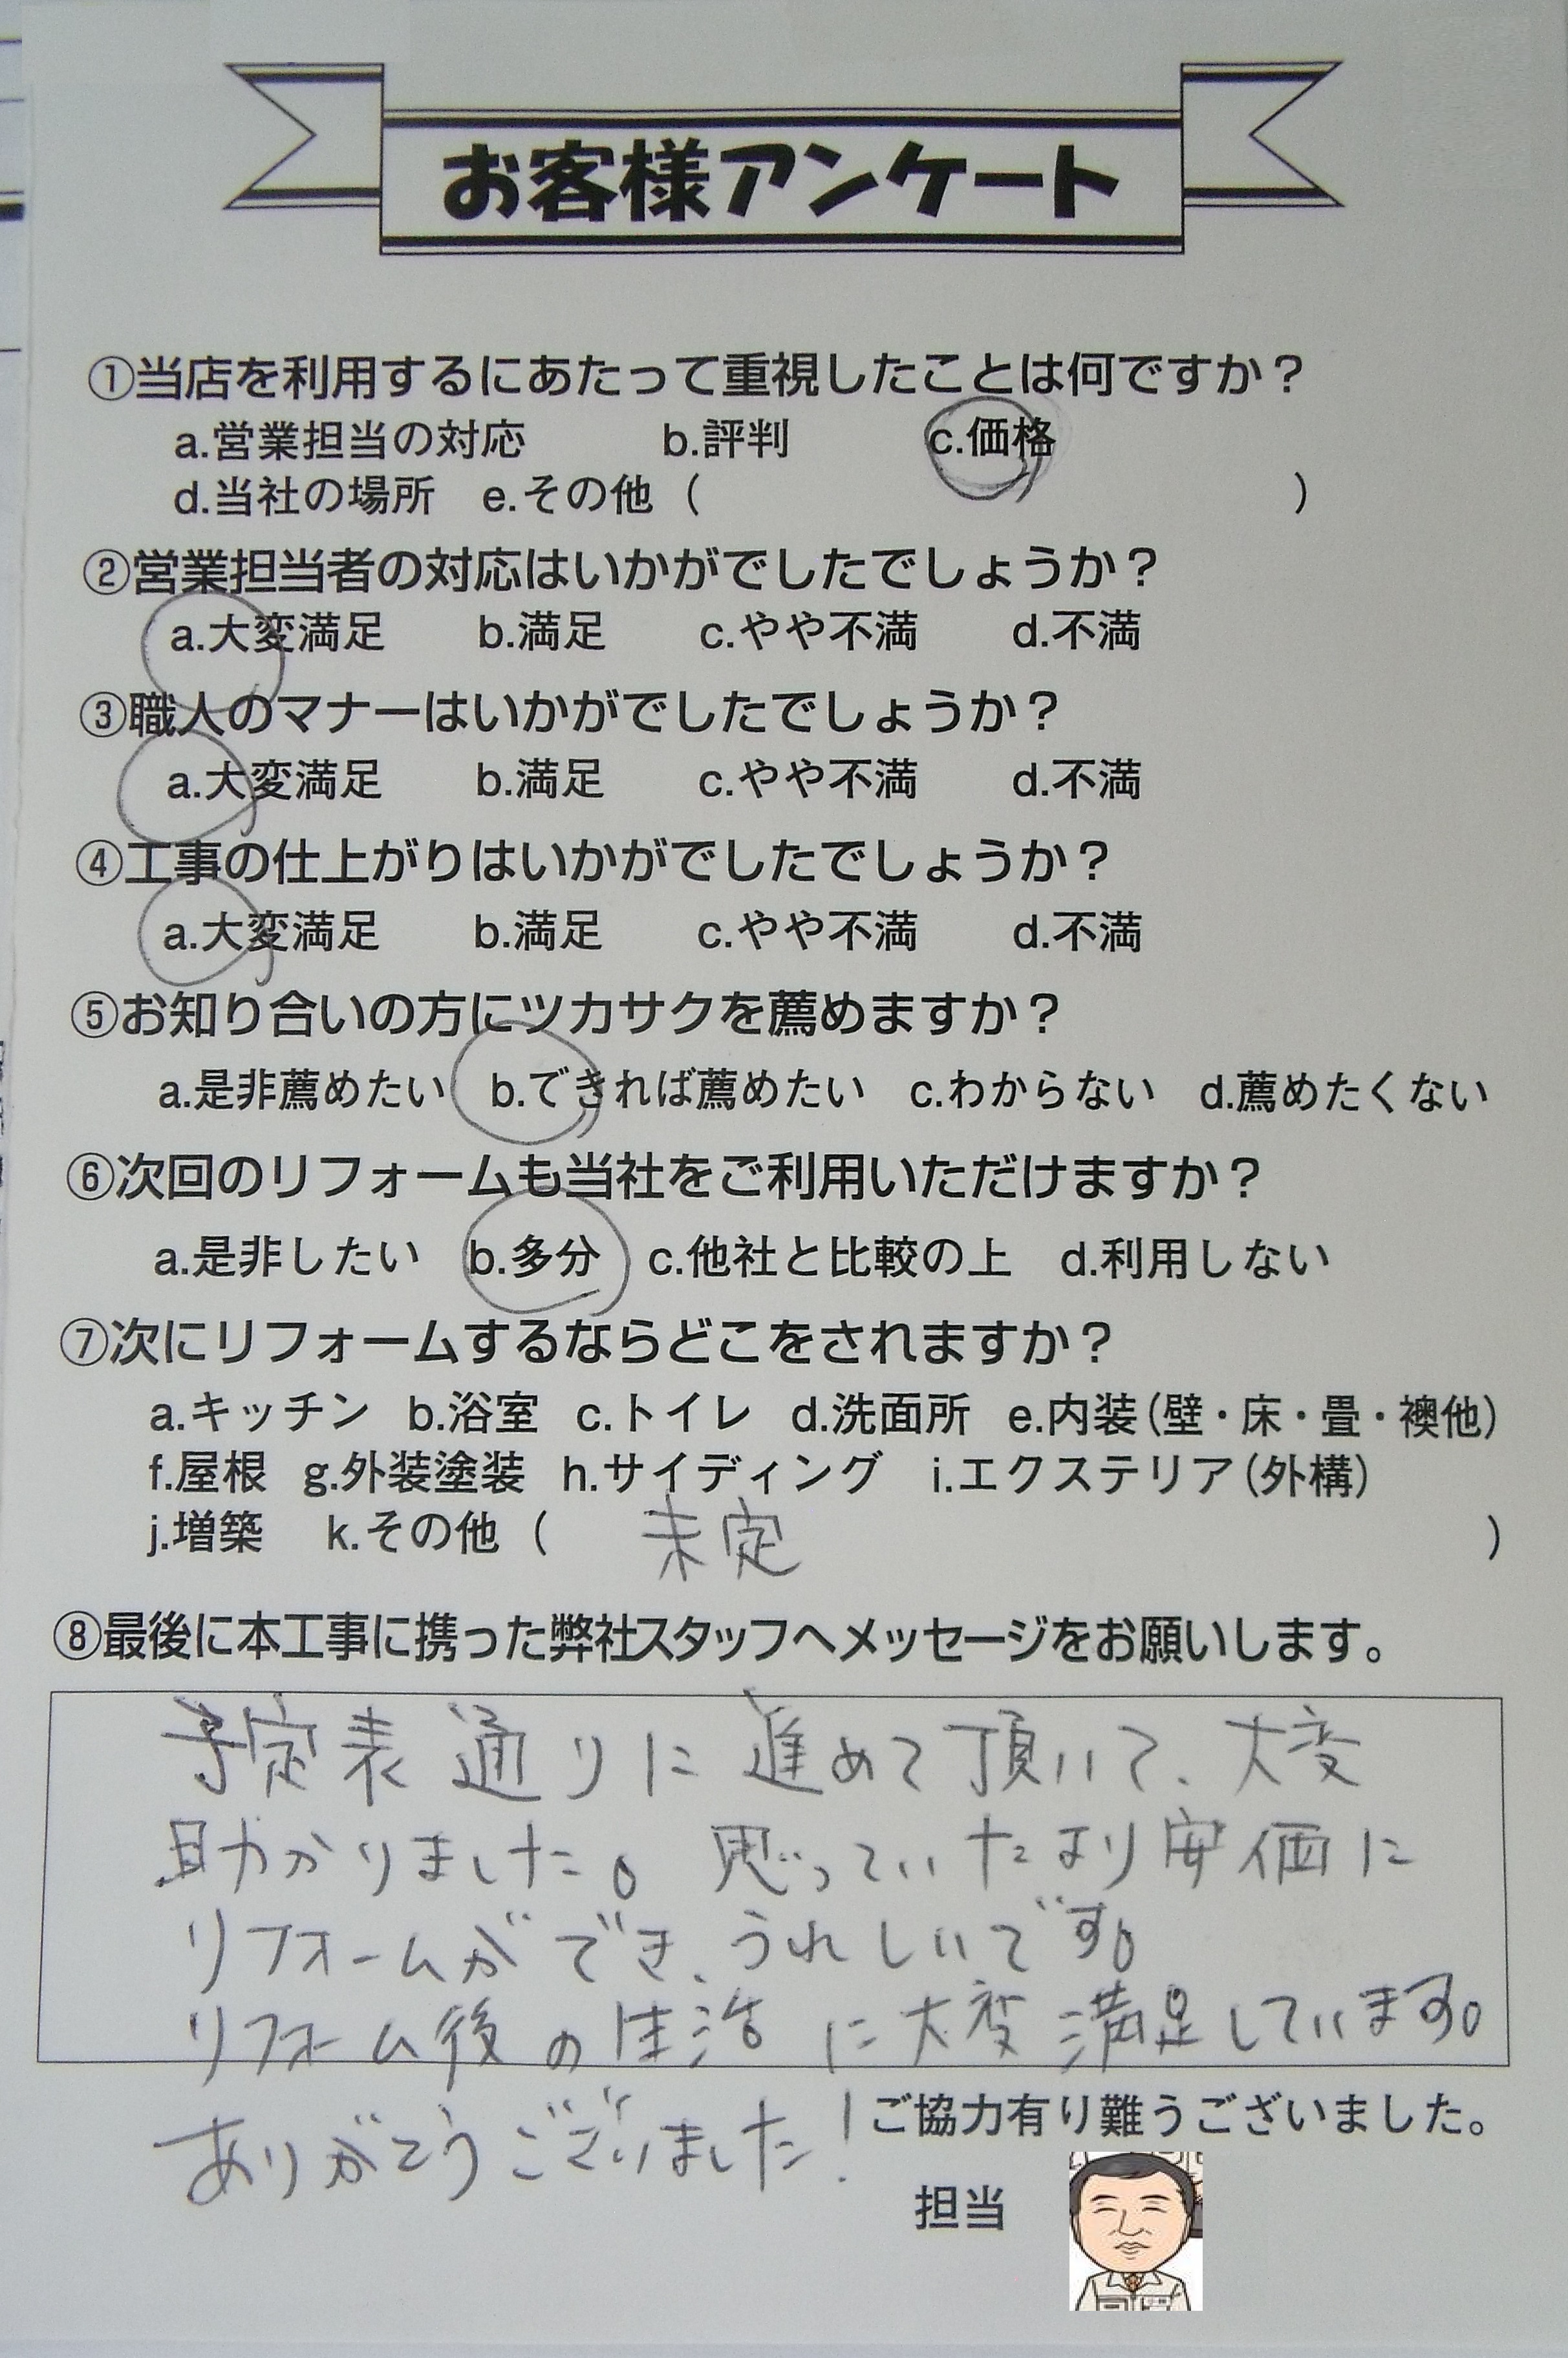 お客様アンケート
①当店を利用するにあたって重視したことは何ですか？
a.営業担当の対応 b.評判 c.価格
d.当社の場所 e.その他（ ）
②営業担当者の対応はいかがでしたでしょうか？
a.大変満足 b.満足 c.やや不満 d.不満
③職人のマナーはいかがでしたでしょうか？
a.大変満足 b.満足 c.やや不満 d.不満
④工事の仕上がりはいかがでしたでしょうか？
a.大変満足 b.満足 c.やや不満 d.不満
⑤お知り合いの方にツカサクを薦めますか？
a.是非薦めたい b.できれば薦めたい c.わからない d.薦めたくない
⑥次回のリフォームも当社をご利用いただけますか？
a.是非したい b.多分 c.他社と比較の上 d.利用しない
⑦次にリフォームするならどこをされますか？
a.キッチン b.浴室 c.トイレ d.洗面所 e.内装（壁・床・畳・襖他）
f.屋根 g.外装塗装 h.サイディング i.エクステリア（外構）
j.増築 k.その他（ 未定 ）
⑧最後に本工事に携った弊社スタッフへメッセージをお願いします。
予定表通りに進めて頂いて、大変
助かりました。思っていたより安価に
リフォームができ、うれしいです。
リフォーム後の生活に大変満足しています。
ありがとうございました！
ご協力有り難うございました。
担当